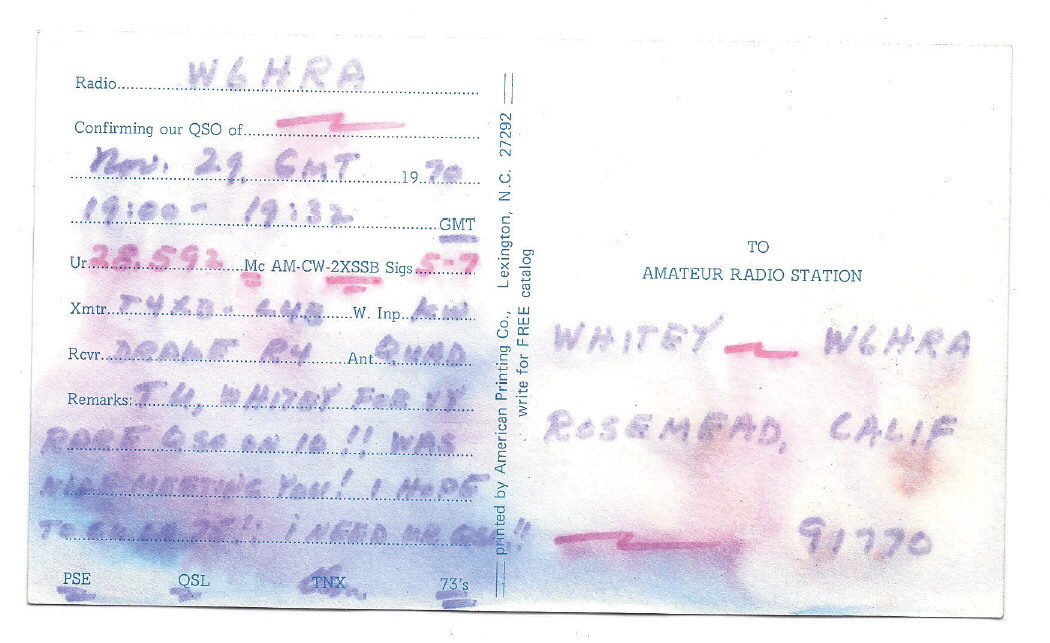 Radio W6HRA
Confirming our QSO of
Nov. 29, GMT 1970
19:00 - 19:32 GMT
Ur 28.592 Mc AM-CW-2XSSB Sigs 5-7
Xmtr. W. Inp. KW
Rcvr. DRAKE R4 Ant. QUAD
Remarks: TU, WHITEY FOR VY
RARE QSO ON 10!! WAS
NICE MEETING YOU! I HOPE
TO I NEED UR
PSE QSL TNX 73's
printed by American Printing Co., Lexington, N.C. 27292
write for FREE catalog
TO
AMATEUR RADIO STATION
WHITEY W6HRA
ROSEMEAD, CALIF
91770